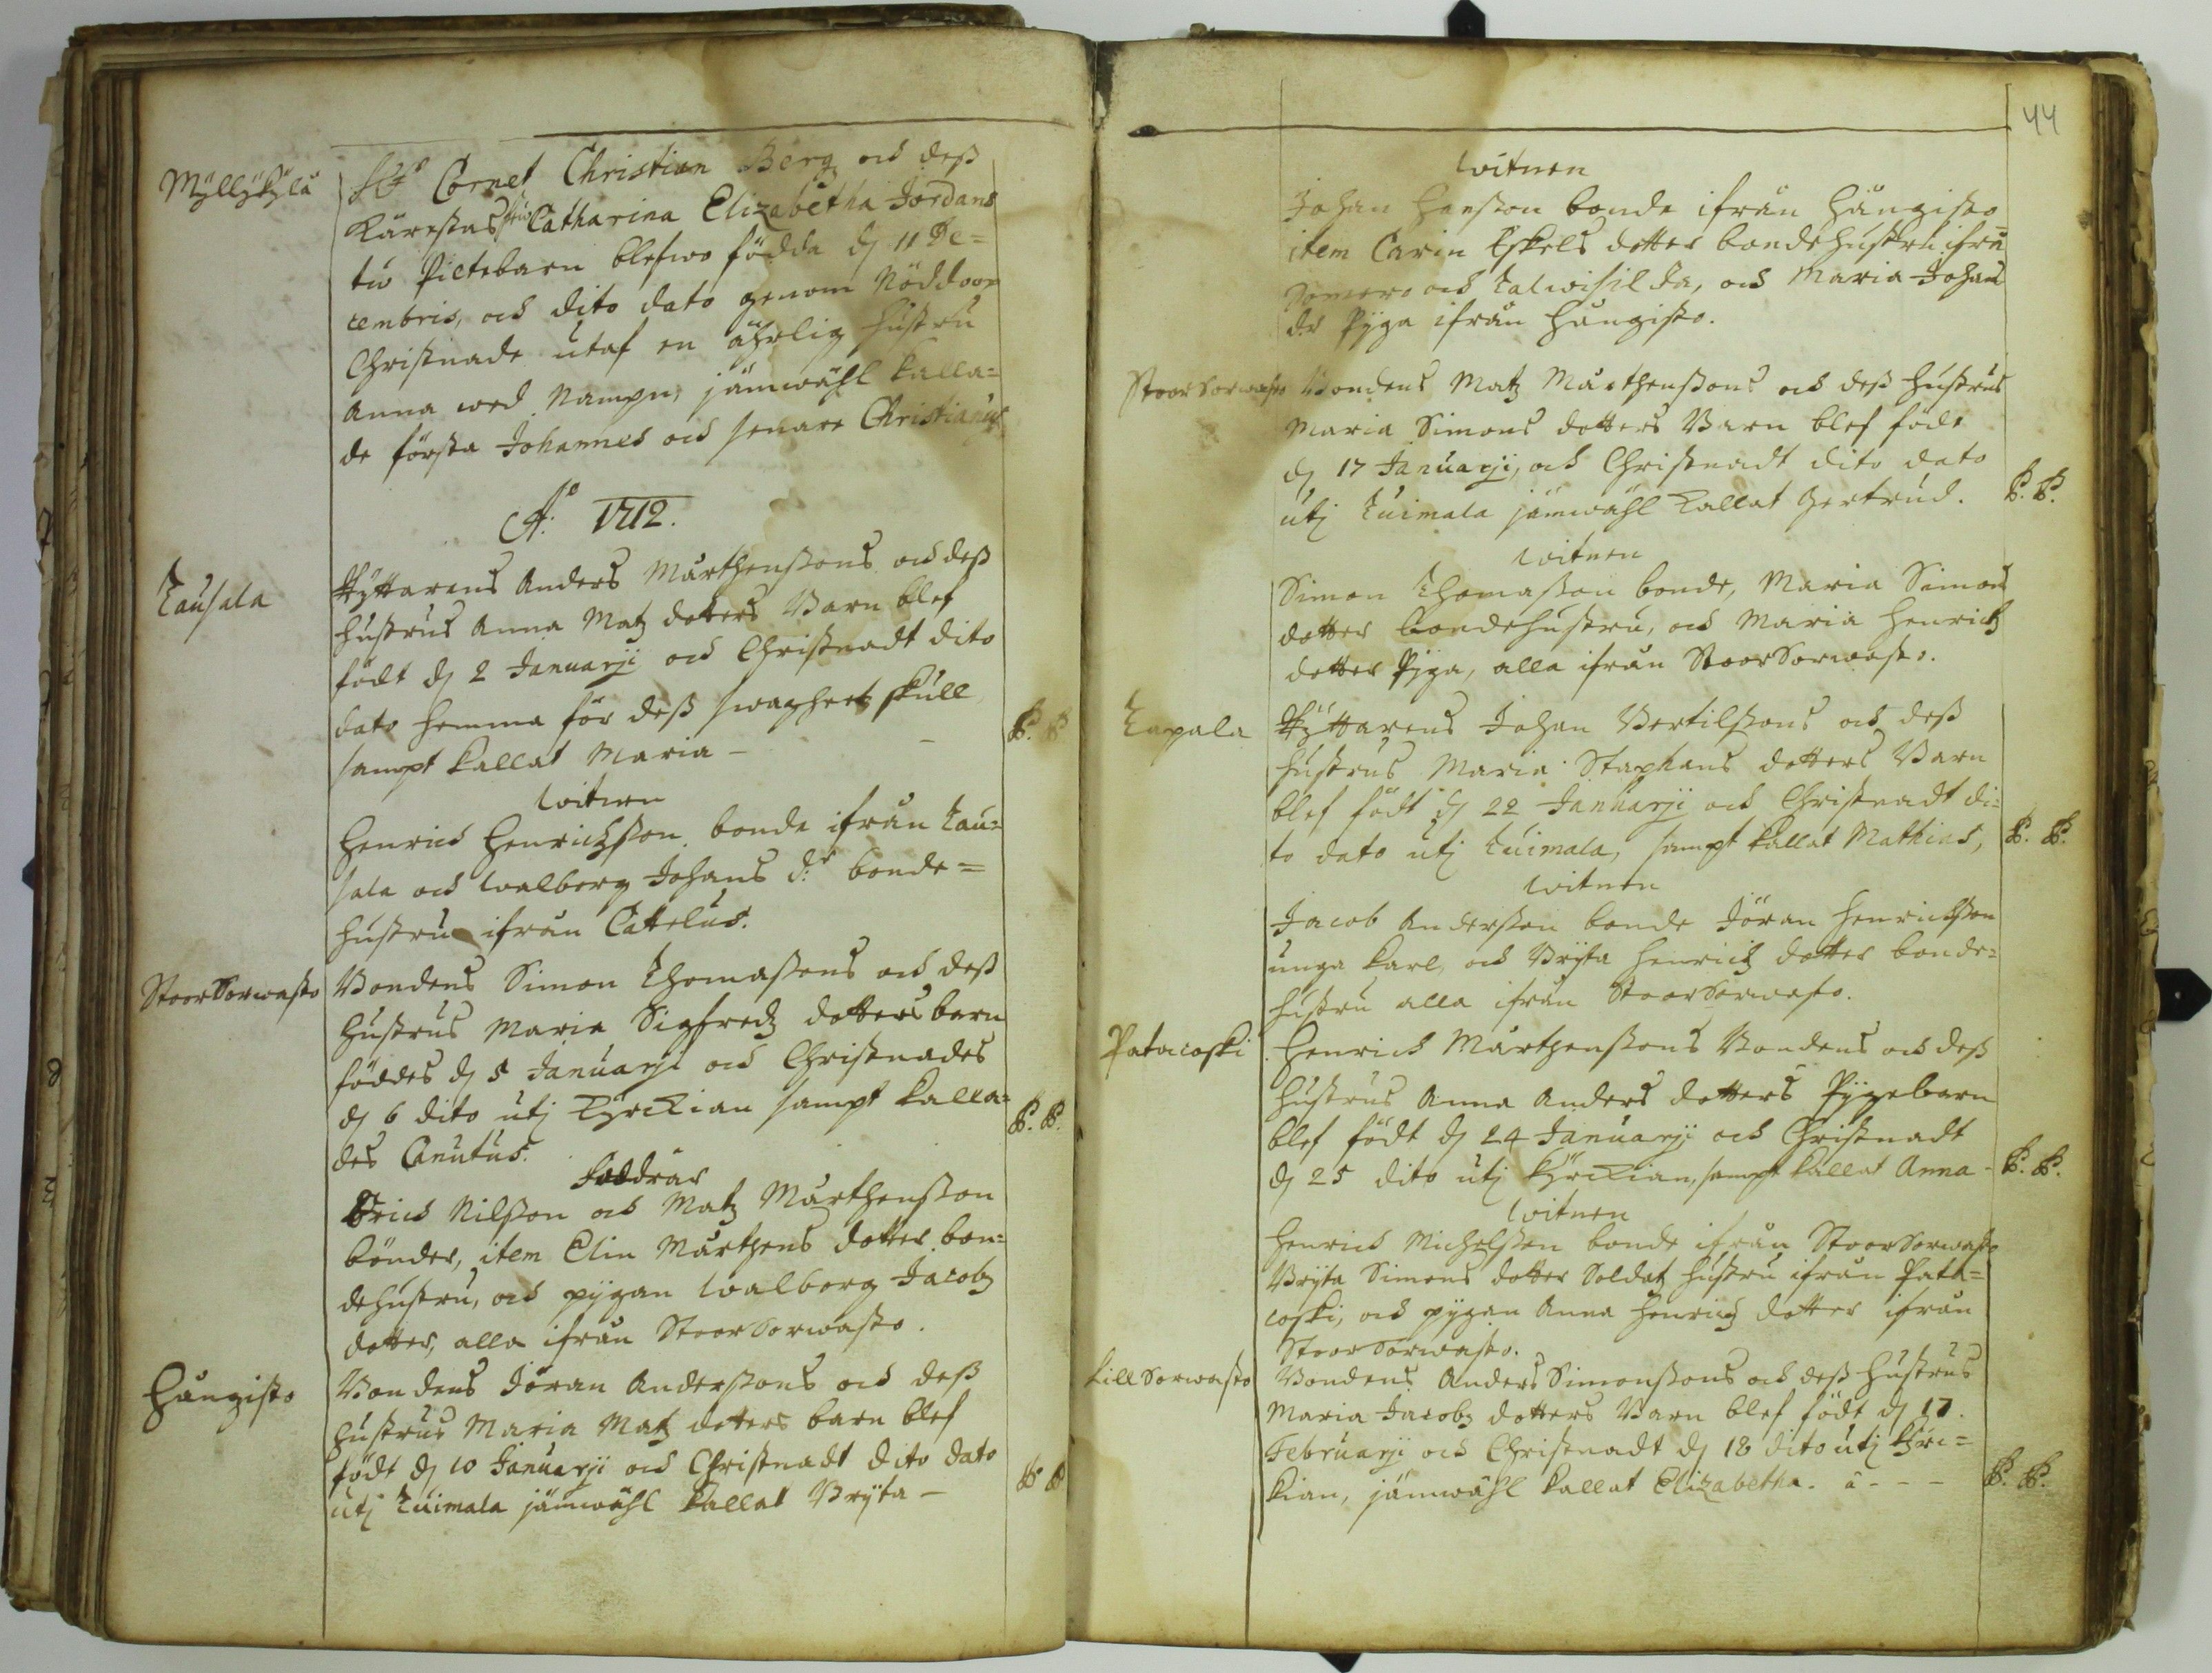 Myllykylä
H:r Cornet Christian Berg och dess
Kärestas fru Catharina Elizabetha Jordans
tw Piltebarn blefwo födda d. 11 De=
cembris, och dito dato genom Nöddoop
Christnade utaf en ährlig hustru
Anna wed Nampn, jämwähl kalla=
de första Johannes och senare Christianus
A:o 1712.
Kausala
Ryttarens Anders Mårthenssons och dess
hustrus Anna Matz dotters Barn blef
födt d. 2 Januarji och Christnadt dito
dato hemma för dess swagheetz skull
sampt kallat Maria -
witnen
Henrich Henrichsson bonde ifrån Kau=
sala och Walborg Johans d:r bonde=
hustru ifrån Cattelus.
StoorSorwasto
Bondens Simon Thomassons och dess
hustrus Maria Sigfredz dotters barn
föddes d. 5 Januarji och Christnades
d. 6 dito utj Kyrckian sampt kalla=
des Canutus.
Faddrar
Erich Nilsson och Matz Mårthensson
bönder, item Elin Mårthens dotter bon=
dehustru, och pygan Walborg Jacobz
dotter, alla ifrån StoorSorwasto.
Hångisto
Bondens Jöran Anderssons och dess
hustrus Maria Matz dotters barn blef
födt d. 10 Januarji och Christnadt dito dato
utj Kuimala jämwähl kallat Bryta -
44
witnen
Johan Hansson bonde ifrån Hångisto
item Carin Eskels dotter bondehustru ifrån
Somero och Talwisilda, och Maria Johans
d:r Pyga ifrån Hångisto.
StoorSorwasto
Bondens Matz Mårthenssons och dess hustrus
Maria Simons dotters Barn blef föde
d. 17 Januarji, och Christnadt dito dato
utj Kuimala jämwähl kallat Gertrud.
witnen
Simon Thomasson bonde, Maria Simons
dotter bondehustru, och Maria Henrichz
dotter Pyga, alla ifrån StoorSorwasto.
Lapala
Ryttarens Johan Bertilssons och dess
hustrus Maria Staphans dotters Barn
blef födt d. 22 Januarji och Christnadt di=
to dato utj Kuimala, sampt kallat Mathias,
witnen
Jacob Andersson bonde Jöran Henrichsson
unga karl, och Bryta Henrichz dotter bonde=
hustru alla ifrån StoorSorwasto.
Patacoski
Henrich Mårthenssons Bondens och dess
hustrus Anna Anders dotters Pygebarn
blef födt d. 24 Januarji och Christnadt
d. 25 dito utj Kyrckian, sampt kallat Anna -
witnen
Henrich Michelsson bonde ifrån StoorSorwasto
Bryta Simons dotter Soldatz hustru ifrån Pata=
coski, och pygan Anna Henrichz dotter ifrån
StoorSorwasto.
LillSorwasto
Bondens Anders Simonssons och dess hustrus
Maria Jacobz dotters Barn blef födt d. 17.
Februarji och Christnadt d. 18 dito utj Kyrc=
kian, jämwähl kallat Elizabetha.